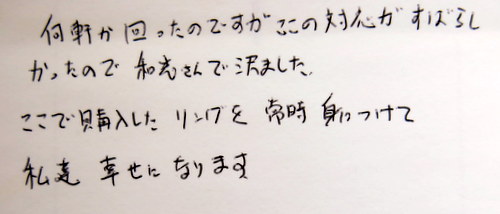 何軒か回ったのですがここの対応がすばらし
かったので 和光さんで決ました。
ここで購入した リングを 常時 身につけて
私達 幸せに なります